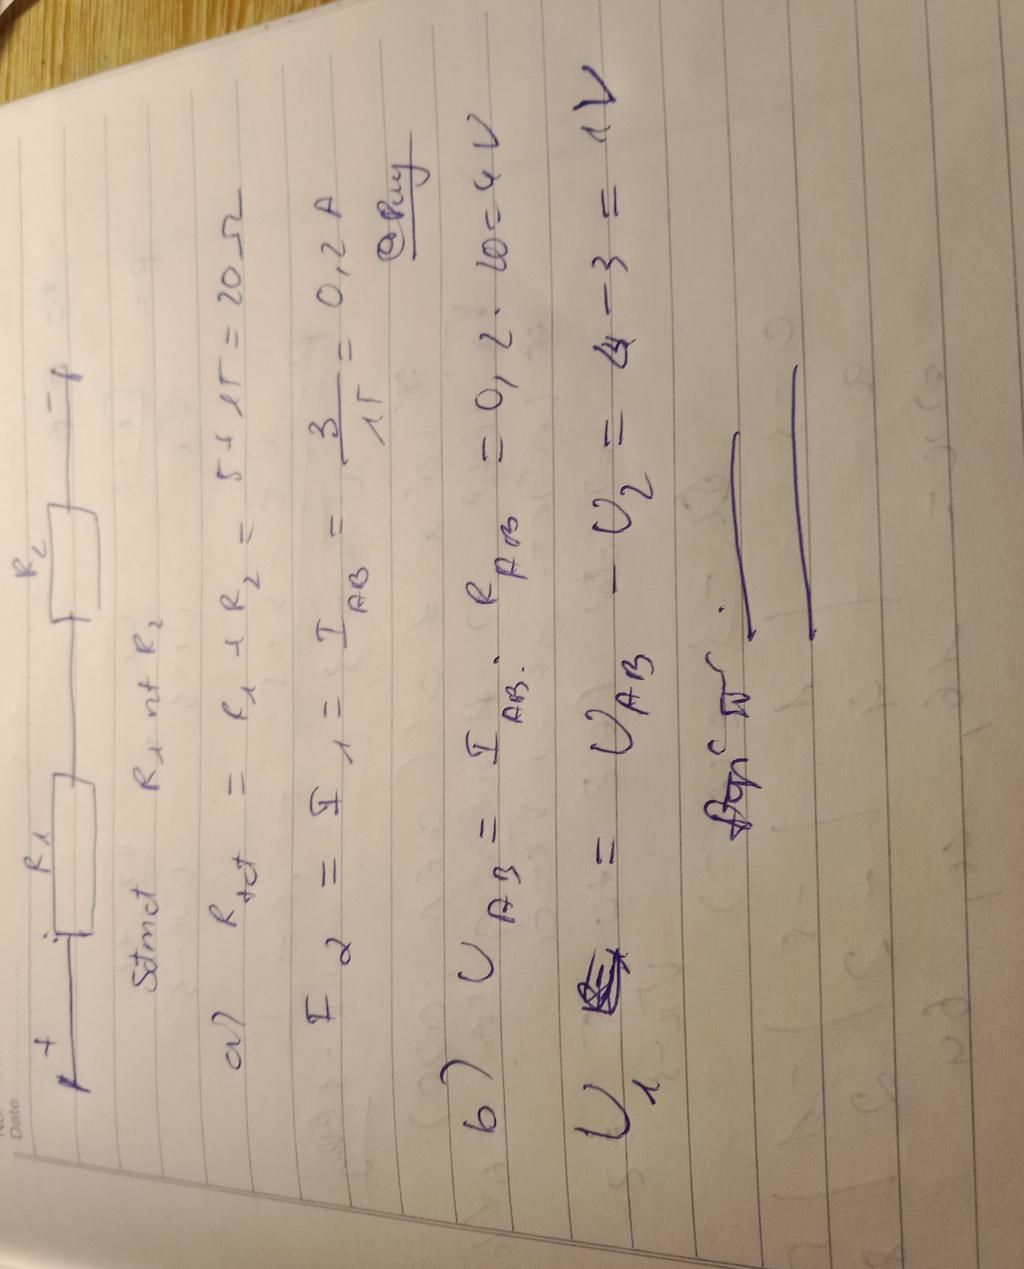 No.
Date
+ R1 R2 -
Sđmđ R1 nt R2
a) Rtđ = R1 + R2 = 5 + 15 = 20 Ω
I2 = I1 = IAB = 3/15 = 0,2 A
@Puy
b) UAB = IAB . RAB = 0,2 . 20 = 4 V
U1 = UAB - U2 = 4 - 3 = 1 V